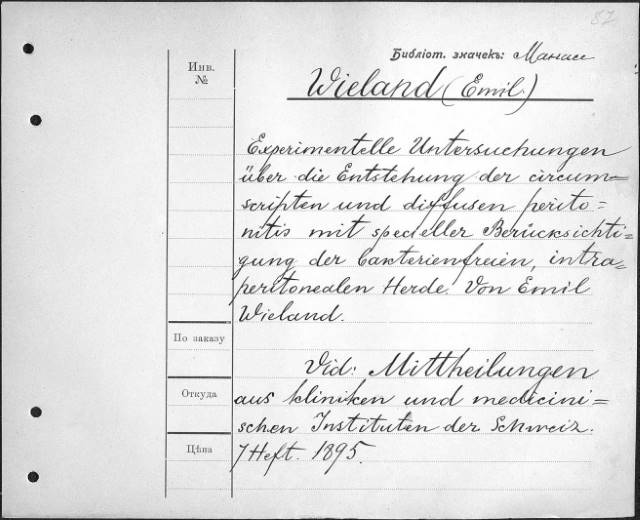 87
Библіот. значекъ: Манасс
Инв.
№
Wieland (Emil.)
Experimentelle Untersuchungen
über die Entstehung der circum=
scripten und diffusen perito=
nitis mit specieller Berücksichti=
gung der bakterienfreien, intra=
peritonealen Herde. Von Emil
Wieland.
По заказу
Vid: Mittheilungen
Откуда
aus kliniken und medicini=
schen Instituten der Schweiz.
Цѣна
7 Heft. 1895.